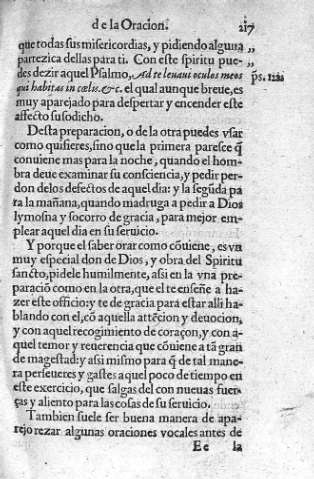 de la Oracion. 217
que todas sus misericordias, y pidiendo alguna „
partezica dellas para ti. Con este spiritu pue- „
des dezir aquel Psalmo, Ad te leuaui oculos meos ps. 122.
qui habitas in cœlis. &c. el qual aunque breue, es
muy aparejado para despertar y encender este
affecto susodicho.
Desta preparacion, o de la otra puedes vsar
como quisieres, sino que la primera paresce q̃
conuiene mas para la noche, quando el hom-
bra deue examinar su consciencia, y pedir per-
don de los defectos de aquel dia: y la segũda pa
ra la mañana, quando madruga a pedir a Dios
lymosna y socorro de gracia, para mejor em-
plear aquel dia en su seruicio.
Y porque el saber orar como cõuiene, es vn
muy especial don de Dios, y obra del Spiritu
sancto, pidele humilmente, assi en la vna pre-
paraciõ como en la otra, que el te enseñe a ha-
zer este officio: y te de gracia para estar alli ha-
blando con el, cõ aquella attẽcion y deuocion,
y con aquel recogimiento de coraçon, y con a-
quel temor y reuerencia que cõuiene a tã gran
de magestad: y assi mismo para q̃ de tal mane-
ra perseueres y gastes aquel poco de tiempo en
este exercicio, que salgas del con nueuas fuer-
ças y aliento para las cosas de su seruicio.
Tambien suele ser buena manera de apa-
rejo rezar algunas oraciones vocales antes de
Ee la